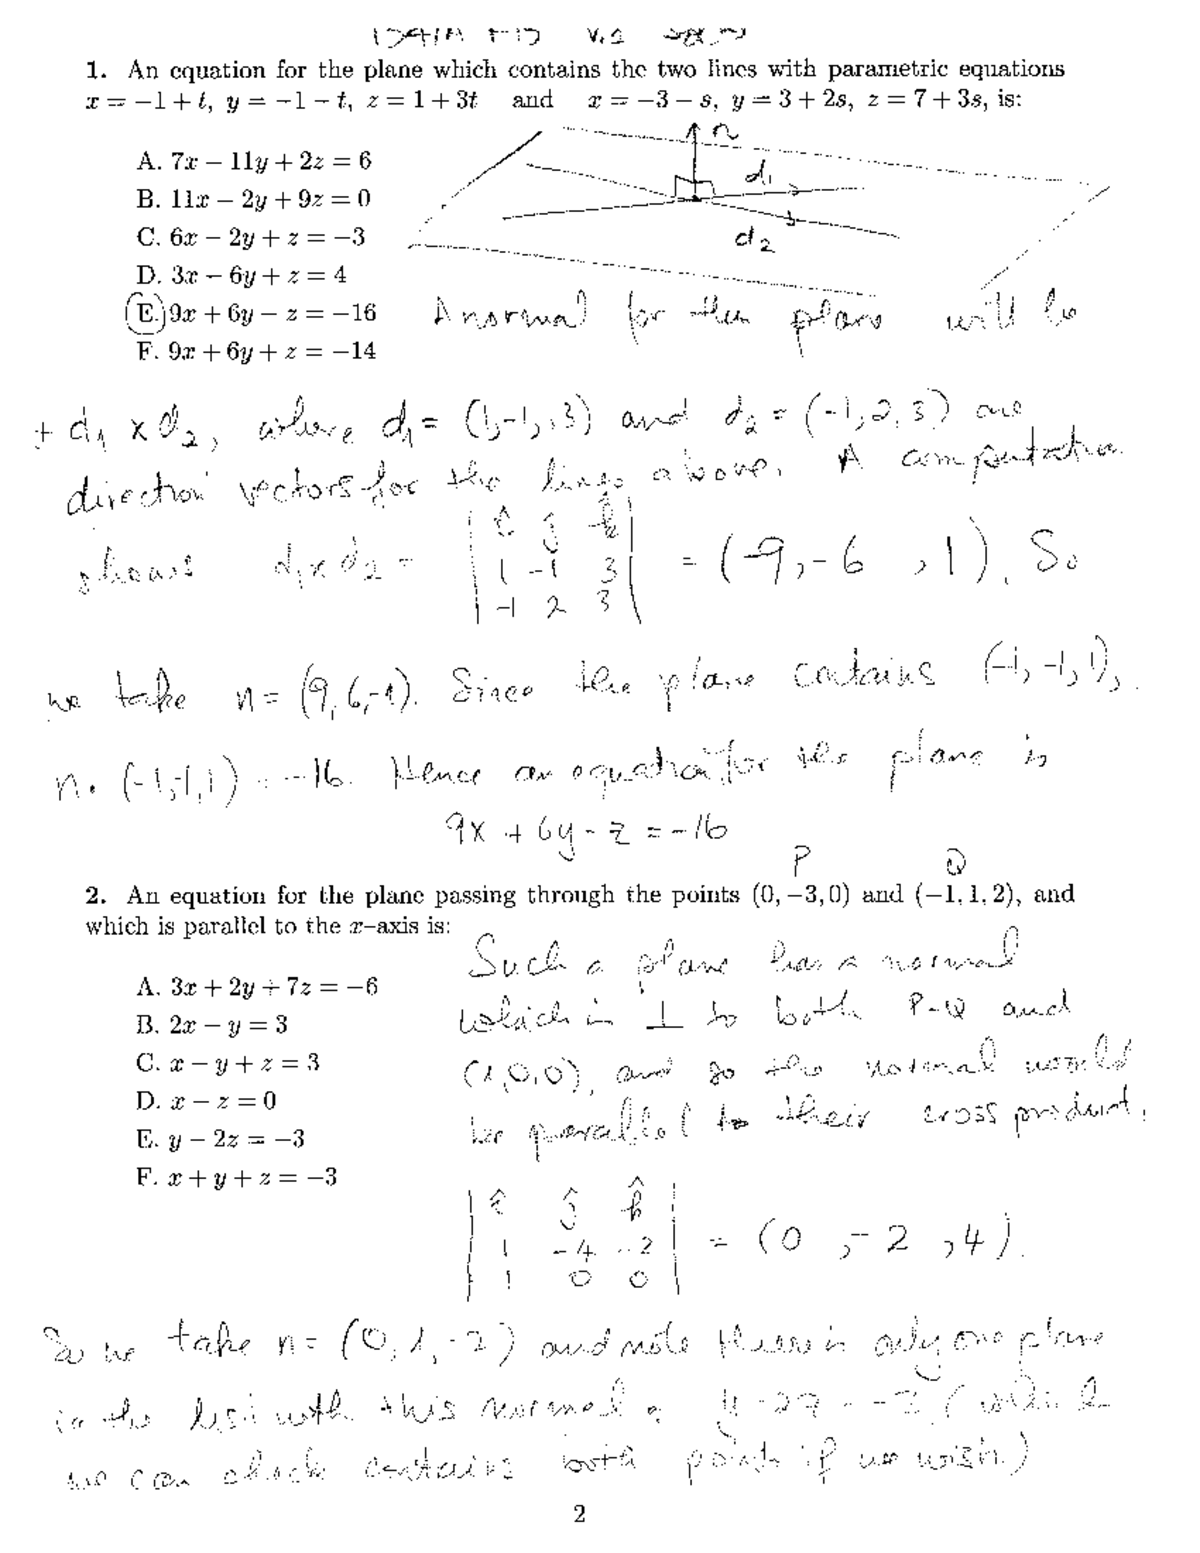 1. An equation for the plane which contains the two lines with parametric equations
x = −1 + t, y = −1 − t, z = 1 + 3t and x = −3 − s, y = 3 + 2s, z = 7 + 3s, is:
n
A. 7x − 11y + 2z = 6
d₁
B. 11x − 2y + 9z = 0
C. 6x − 2y + z = −3
d₂
D. 3x − 6y + z = 4
E. 9x + 6y − z = −16 A normal for the plane will be
F. 9x + 6y + z = −14
± d₁ x d₂, where d₁ = (1,-1,3) and d₂ = (-1,2,3) are
direction vectors for the lines above. A computation
shows d₁ x d₂ = | î ĵ k̂ |
| 1 -1 3 | = (-9, -6, 1). So
| -1 2 3 |
we take n = (9,6,-1). Since the plane contains (-1,-1,1),
n·(-1,-1,1) = -16. Hence an equation for the plane is
9x + 6y - z = -16
P Q
2. An equation for the plane passing through the points (0, −3, 0) and (−1, 1, 2), and
which is parallel to the x–axis is:
Such a plane has a normal
A. 3x + 2y + 7z = −6
which is ⊥ to both P-Q and
B. 2x − y = 3
C. x − y + z = 3
(1,0,0), and so the normal would
D. x − z = 0
be parallel to their cross product.
E. y − 2z = −3
F. x + y + z = −3
| î ĵ k̂ |
| 1 -4 -2 | = (0, -2, 4).
| 1 0 0 |
So we take n = (0, 1, -2) and note there is only one plane
in the list with this normal: y - 2z = -3 (which
we can check contains both points if we wish)
2